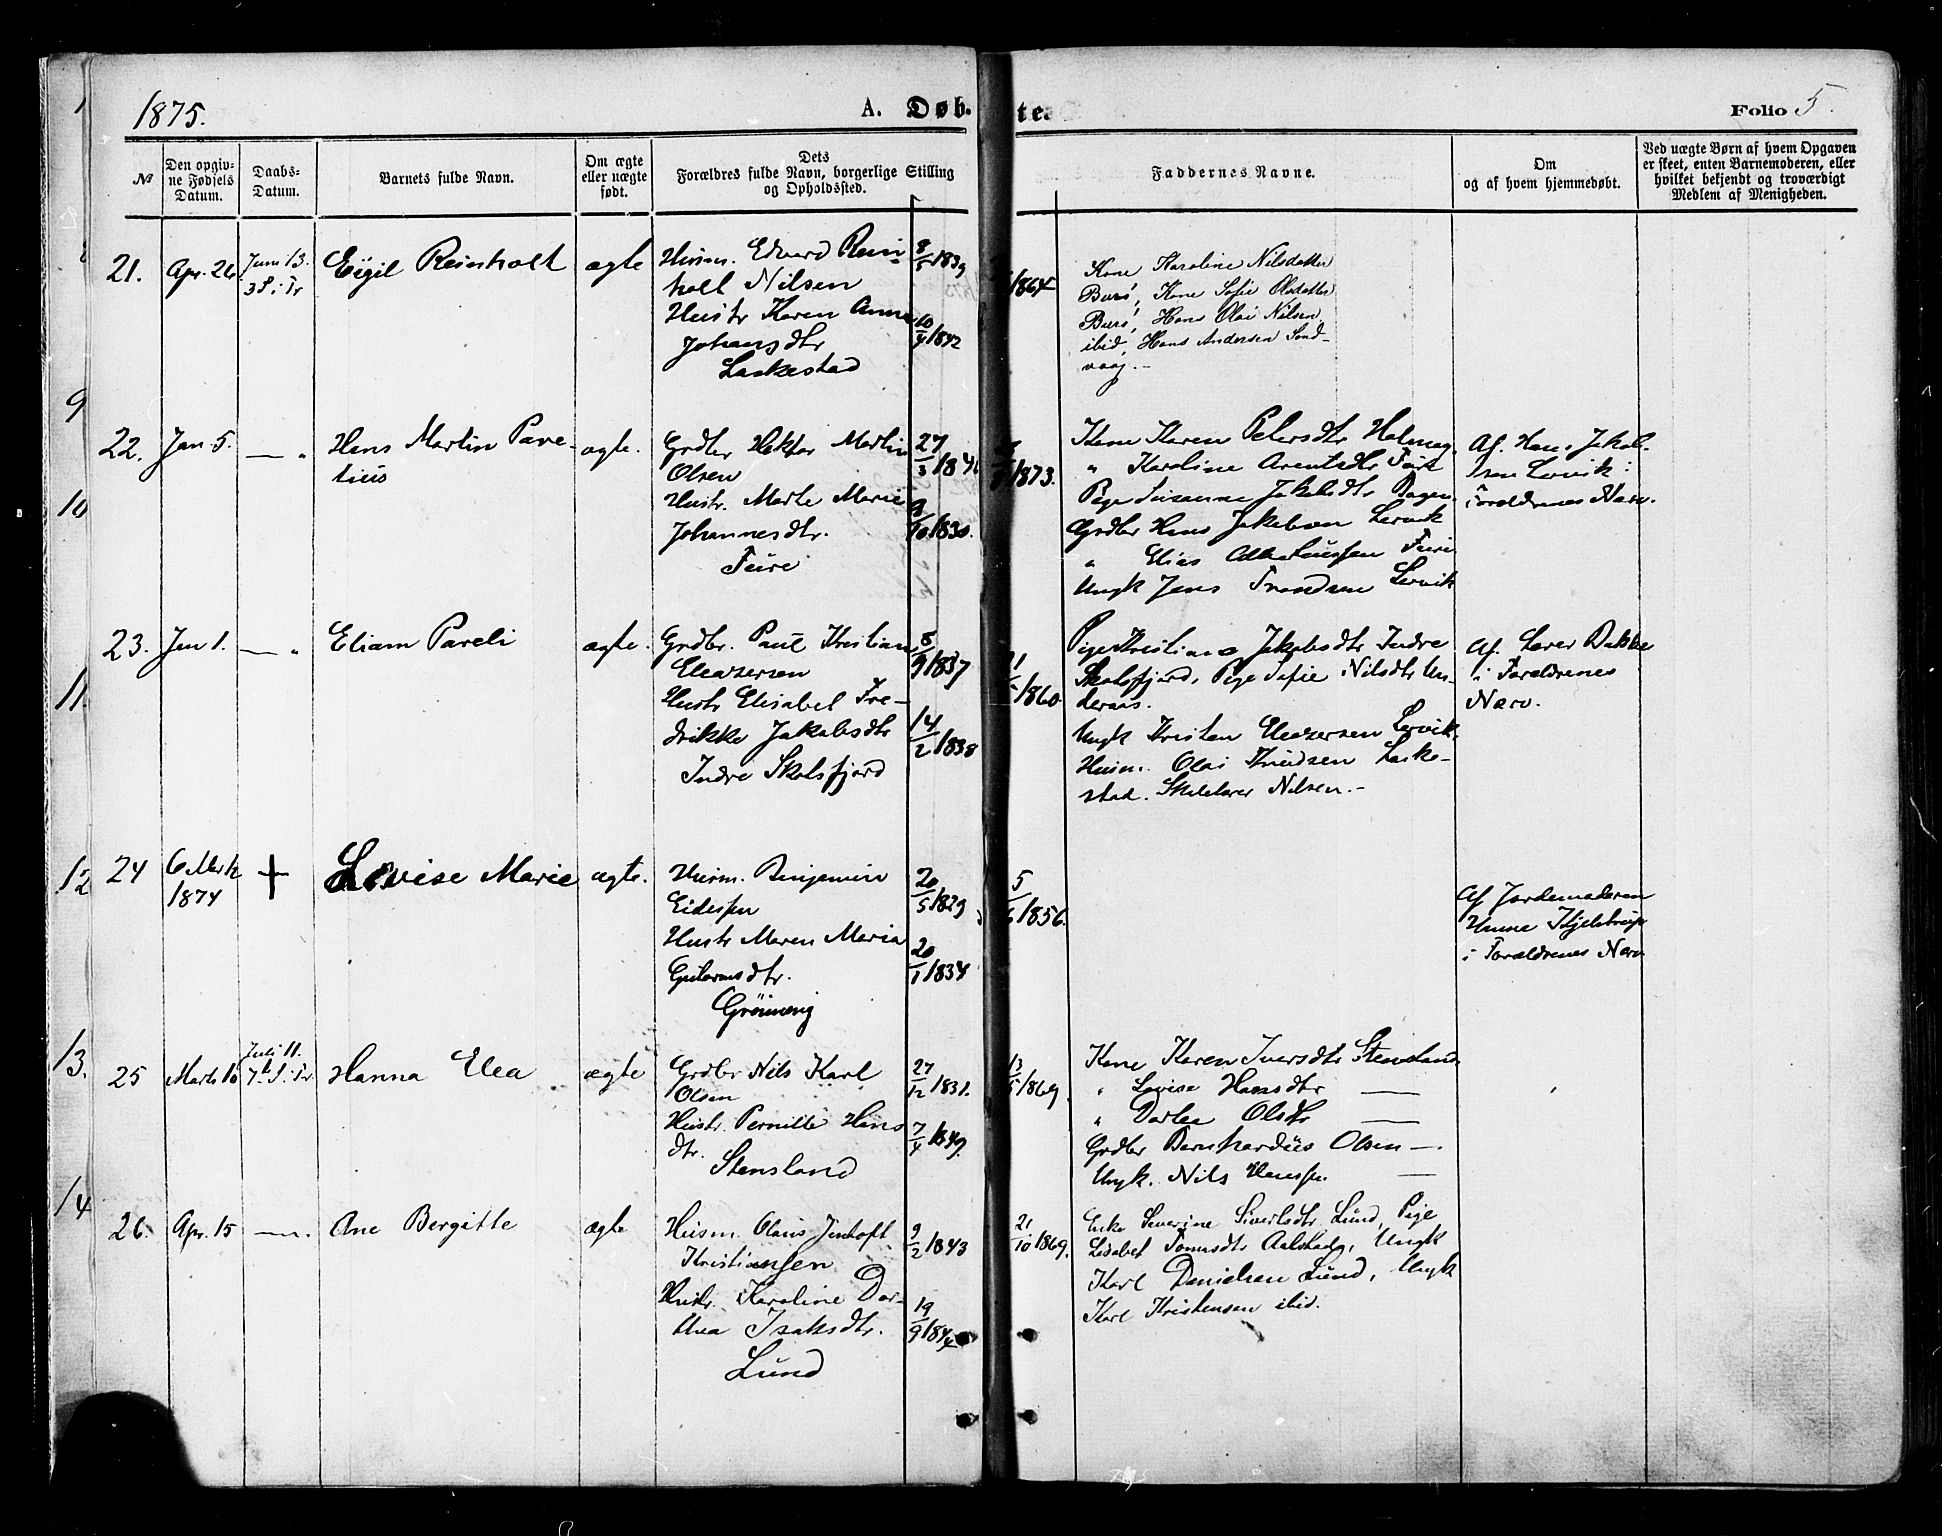 1875.
A. Døb-
te.
Folio 5.
№
Den opgiv-
ne Fødsels
Datum.
Daabs-
Datum.
Barnets fulde Navn.
Om ægte
eller uægte
født.
Dets
Forældres fulde Navn, borgerlige Stilling
og Opholdssted.
Faddernes Navne.
Om
og af hvem hjemmedøbt.
Ved uægte Børn af hvem Opgaven
er skeet, enten Barnemoderen, eller
hvilket bekjendt og troværdigt
Medlem af Menigheden.
21.
Apr. 26
Juni 13.
3 S. i Tr
Eigil Reinholt
ægte
Husm. Edvard Rein-
holt Nilsen
Hustr Karen Anna
Johansdtr
Laskestad
8/5 1839
10/4 1842
/1864
Kone Karoline Nilsdatter
Burø, Kone Sofie Olsdatter
Burø, Hans Olai Nilsen
ibid, Hans Andersen Sand-
vaag.-
9
22.
Jan 5.
— "
Hans Martin Pare-
lius
ægte.
Grdbr Hektor Martin
Olsen
Hustr. Marte Marie
Johannesdtr.
Fure
27/3 184
10/1830.
/1873.
Kone Karen Petersdtr Holmag
" Karoline Arentsdtr Fure
Pige Susanna Jakobsdtr Bogen
Grdbr Hans Jakobsen Lervik
" Elias Fure
Ungk Jens Trondsen Lervik
Af. Hans Jakob-
sen Lervik i
Foraldrenes Narv.
10
23.
Jan 1.
— "
Eliam Pareli
ægte.
Grdbr. Paul Kristian
Eleasersen
Hustr Elisabet Fre-
drikke Jakobsdtr
Indre Skotsfjord
8/9 1837
14/2 1838
/1860.
Pige Kristiane Jakobsdtr Indre
Skotsfjord, Pige Sofie Nilsdtr Un-
deraas.
Ungk Kristen Eleasersen Lervik.
Husm. Olai Knudsen Laske-
stad. Skolelærer Nilsen.-
Af. Lærer Bakke
i Foraldrenes
Narv.
11.
24
6 Marts
1874
+
Lovise Marie
ægte.
Husm. Benjamin
Eidessen
Hustr Maren Maria
Gutormsdtr.
Grönneng
20/5 1829
20/1 1834
5/6 1856.
Af Jordemoderen
Unna Kjelstrup
i Foraldrenes Narv
12
25
Marts 10
Juli 11.
7de S. Tr
Hanna Elea
ægte
Grdbr Nils Karl
Olsen
Hustr. Pernille Hans
dtr.
Stensland
27/12 1831.
7/4 1849.
13/5 1869.
Kone Karen Iversdtr Stensland
" Lovise Hansdtr —
" Dorlea Olsdtr —
Grdbr Bernhardus Olsen —.
Ungk. Nils Hanssen. —
13.
26.
Apr. 15
— ".
Ane Bergitte
ægte
Husm. Olaus Jentoft
Kristiansen
Hustr. Karoline Dor-
thea Isaksdtr.
Lund
2/2 1843
19/9 1844
21/10 1869.
Enke Severine Sivertsdtr Lund, Pige
Lisabet Tomasdtr Aalstadø, Ungk
Karl Danielsen Lund, Ungk
Karl Kristensen ibid.
14